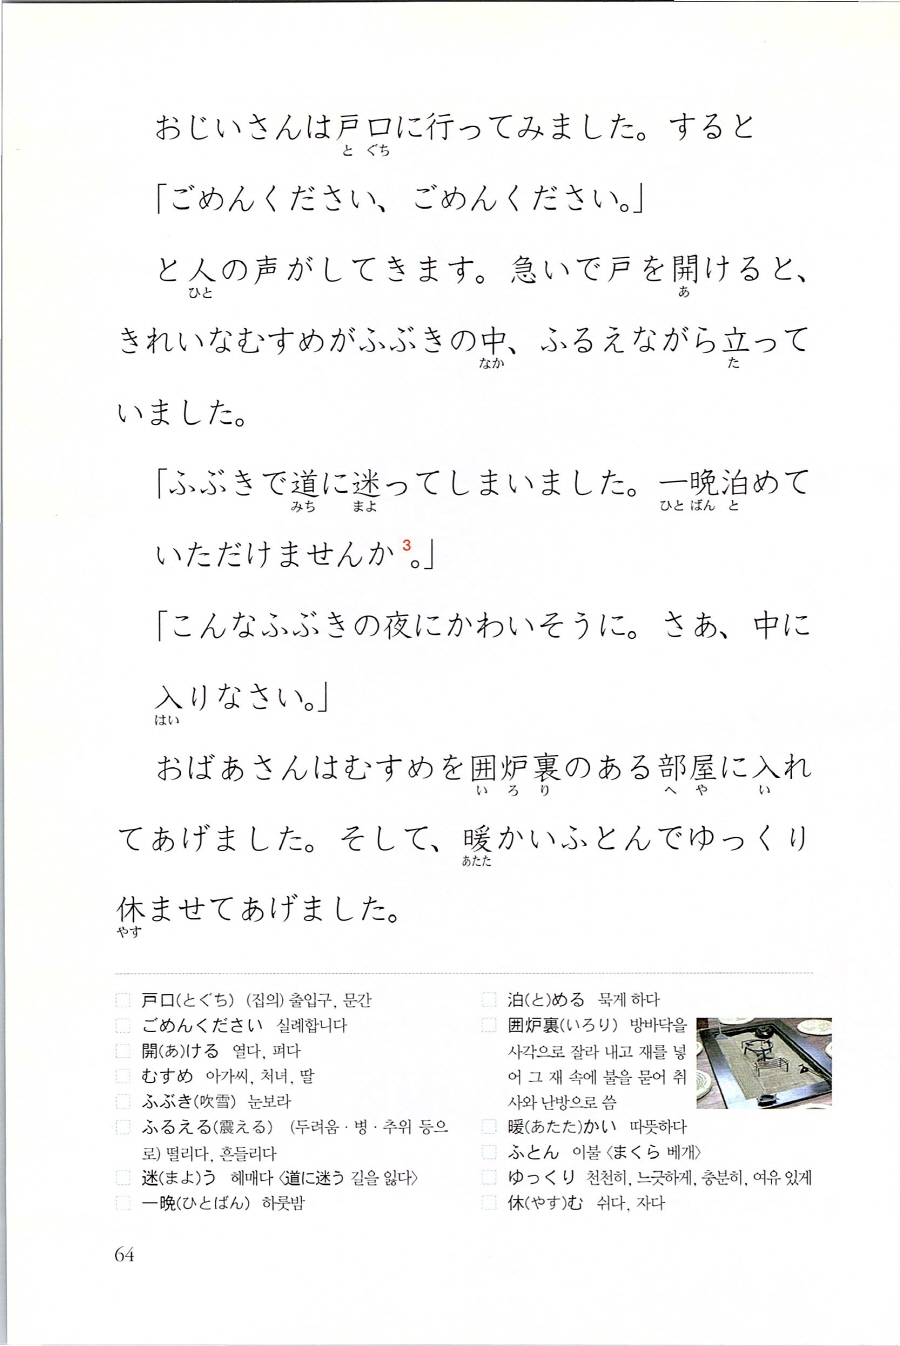 おじいさんは戸口に行ってみました。すると
と ぐち
「ごめんください、ごめんください。」
と人の声がしてきます。急いで戸を開けると、
ひと あ
きれいなむすめがふぶきの中、ふるえながら立って
なか た
いました。
「ふぶきで道に迷ってしまいました。一晩泊めて
みち まよ ひと ばん と
いただけませんか3。」
「こんなふぶきの夜にかわいそうに。さあ、中に
入りなさい。」
はい
おばあさんはむすめを囲炉裏のある部屋に入れ
い ろ り へ や い
てあげました。そして、暖かいふとんでゆっくり
あたた
休ませてあげました。
やす
戸口(とぐち) (집의) 출입구, 문간
ごめんください 실례합니다
開(あ)ける 열다, 펴다
むすめ 아가씨, 처녀, 딸
ふぶき(吹雪) 눈보라
ふるえる(震える) (두려움·병·추위 등으
로) 떨리다, 흔들리다
迷(まよ)う 헤매다 〈道に迷う 길을 잃다〉
一晩(ひとばん) 하룻밤
泊(と)める 묵게 하다
囲炉裏(いろり) 방바닥을
사각으로 잘라 내고 재를 넣
어 그 재 속에 불을 묻어 취
사와 난방으로 씀
暖(あたた)かい 따뜻하다
ふとん 이불 〈まくら 베개〉
ゆっくり 천천히, 느긋하게, 충분히, 여유 있게
休(やす)む 쉬다, 자다
64